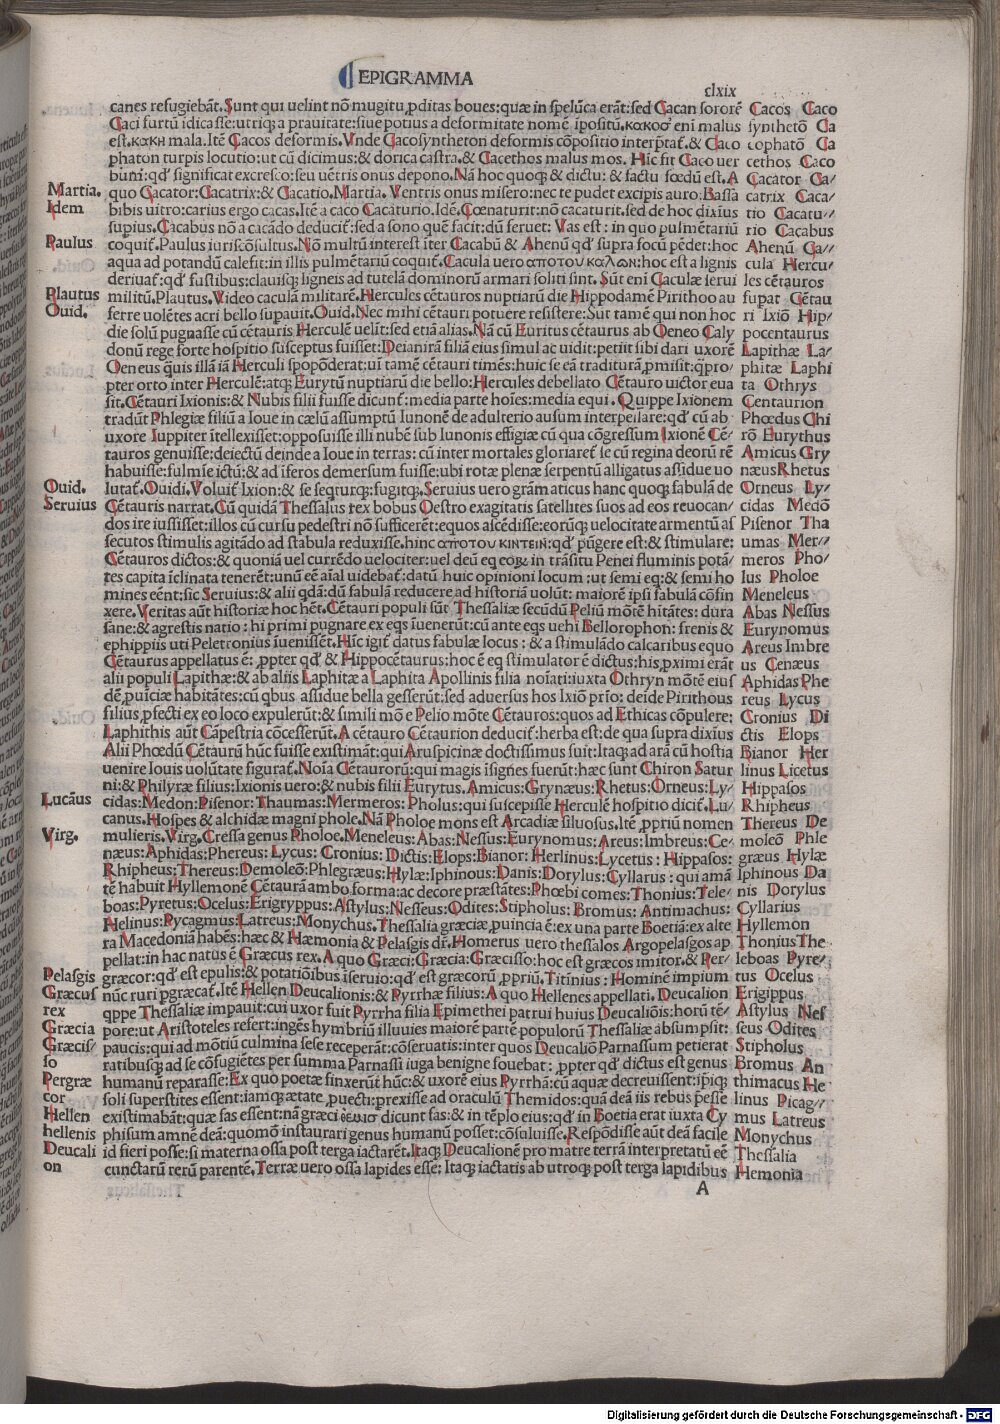 EPIGRAMMA
clxix
canes refugiebāt. Sunt qui uelint nō mugitu ꝓditas boues: quæ in spelūca erāt: sed Cacan sororē
Caci furtū idicasse: utriqꝫ a prauitate: siue potius a deformitate nomē ipositū. κακοσ eni malus
est. κακη mala. Itē Cacos deformis. Vnde Cacosyntheton deformis cōpositio interptat̄. & Caco
phaton turpis locutio: ut cū dicimus: & dorica castra. & Cacethos malus mos. Hic fit Caco uer
bum: qd̄ significat excresco: seu uētris onus depono. Nā hoc quoqꝫ & dictu: & factu fœdū est. A
quo Cacator: Cacatrix: & Cacatio. Martia. Ventris onus misero: nec te pudet excipis auro: Bassa
bibis uitro: carius ergo cacas. Itē a caco Cacaturio. Idē. Cœnaturit: nō cacaturit. sed de hoc dixius
supius. Cacabus nō a cacādo deducit̄: sed a sono quē facit: dū feruet: Vas est: in quo pulmētariū
coquit̄. Paulus iuriscōsultus. Nō multū interest iter Cacabū & Ahenū qd̄ supra focū pēdet: hoc
aqua ad potandū calefit: in illis pulmētariū coquit̄. Cacula uero αποτου καλων: hoc est a lignis
deriuat̄: qd̄ fustibus: clauisqꝫ ligneis ad tutelā dominorū armari soliti sint. Sūt eni Caculæ serui
militū. Plautus. Video caculā militarē. Hercules cētauros nuptiarū die Hippodamē Pirithoo au
ferre uolētes acri bello supauit. Ouid. Nec mihi cētauri potuere resistere: Sūt tamē qui non hoc
die solū pugnasse cū cētauris Herculē uelīt: sed etiā alias. Nā cū Euritus cētaurus ab Oeneo Caly
donū rege forte hospitio susceptus fuisset: Deianirā filiā eius simul ac uidit: petiit sibi dari uxorē
Oeneus quis illā iā Herculi spopōderat: ui tamē cētauri timēs: huic se eā traditurā ꝓmisit: qpro/
pter orto inter Herculē: atqꝫ Eurytū nuptiarū die bello: Hercules debellato Cētauro uictor eua
sit. Cētauri Ixionis: & Nubis filii fuisse dicunt̄: media parte hoies: media equi. Quippe Ixionem
tradūt Phlegiæ filiū a Ioue in cælū assumptū Iunonē de adulterio ausum interpellare: qd̄ cū ab
uxore Iuppiter itellexisset: opposuisse illi nubē sub Iunonis effigiæ cū qua cōgressum Ixionē Cē/
tauros genuisse: deiectū deinde a Ioue in terras: cū inter mortales gloriaret̄ se cū regina deorū rē
habuisse: fulmīe ictū: & ad iferos demersum fuisse: ubi rotæ plenæ serpentū alligatus assidue uo
lutat̄. Ouidi. Voluit̄ Ixion: & se seqturqꝫ: fugitqꝫ. Seruius uero grāmaticus hanc quoqꝫ fabulā de
Cētauris narrat. Cū quidā Thessalus rex bobus Oestro exagitatis satellites suos ad eos reuocan/
dos ire iussisset: illos cū cursu pedestri nō sufficerēt: equos ascēdisse: eorūqꝫ uelocitate armentū as
secutos stimulis agitādo ad stabula reduxisse. hinc αποτου κιντειν: qd̄ pūgere est: & stimulare:
Cētauros dictos: & quoniā uel currēdo uelociter: uel deū eq eoꝝ in trāsitu Penei fluminis potā/
tes capita iclinata tenerēt: unū eē aīal uidebat̄: datū huic opinioni locum: ut semi eq: & semi ho
mines eēnt: sic Seruius: & alii qdā: dū fabulā reducere ad historiā uolūt: maiorē ipsi fabulā cōfin
xere. Veritas aūt historiæ hoc hēt. Cētauri populi sūt Thessaliæ secūdū Peliū mōtē hitātes: dura
sane: & agrestis natio: hi primi pugnare ex eqs iuenerūt: cū ante eqs uehi Bellorophon: frenis &
ephippiis uti Peletronius iuenisset. Hīc igit̄ datus fabulæ locus: & a stimulādo calcaribus equo
Cētaurus appellatus ē: ꝓpter qd̄ & Hippocētaurus: hoc ē eq stimulator ē dictus: his ꝓximi erāt
alii populi Lapithæ: & ab aliis Laphitæ a Laphita Apollinis filia noiati: iuxta Othryn mōtē eius
dē ꝓuiciæ habitātes: cū qbus assidue bella gesserūt: sed aduersus hos Ixiō prio: deide Pirithous
filius ꝓfecti ex eo loco expulerūt: & simili mō e Pelio mōte Cētauros: quos ad Ethicas cōpulere:
Laphithis aūt Cāpestria cōcesserūt. A cētauro Cētaurion deducit̄: herba est: de qua supra dixius
Alii Phœdū Cētaurū hūc fuisse existimāt: qui Aruspicinæ doctissimus fuit: Itaqꝫ ad arā cū hostia
uenire Iouis uolūtate figurat̄. Noīa Cētaurorū: qui magis isignes fuerūt: hæc sunt Chiron Satur
ni: & Philyræ filius: Ixionis uero: & nubis filii Eurytus. Amicus: Grynæus: Rhetus: Orneus: Ly/
cidas: Medon: Pisenor: Thaumas: Mermeros: Pholus: qui suscepisse Herculē hospitio dicit̄. Lu/
canus. Hospes & alchidæ magni phole. Nā Pholoe mons est Arcadiæ siluosus. Itē ꝓpriū nomen
mulieris. Virg. Cressa genus Pholoe. Meneleus: Abas: Nessus: Eurynomus: Areus: Imbreus: Ce/
næus: Aphidas: Phereus: Lycus: Cronius: Dictis: Elops: Bianor: Herlinus: Lycetus: Hippasos:
Rhipheus: Thereus: Demoleō: Phlegræus: Hylæ: Iphinous: Danis: Dorylus: Cyllarus: qui amā
tē habuit Hyllemonē Cētaurā ambo forma: ac decore præstātes: Phœbi comes: Thonius: Tele/
boas: Pyretus: Ocelus: Erigryppus: Astylus: Nesseus: Odites: Stipholus: Bromus: Antimachus:
Helinus: Pycagmus: Latreus: Monychus. Thessalia græciæ ꝓuincia ē: ex una parte Boetiā: ex alte
ra Macedoniā habēs: hæc & Hæmonia & Pelasgis dr̄. Homerus uero thessalos Argopelasgos ap
pellat: in hac natus ē Græcus rex. A quo Græci: Græcia: Græcisso: hoc est græcos imitor. & Per/
græcor: qd̄ est epulis: & potatiōibus iseruio: qd̄ est græcorū ꝓpriū. Titinius: Hominē impium
nūc ruri pgræcat̄. Itē Hellen Deucalionis: & Pyrrhæ filius: A quo Hellenes appellati. Deucalion
qppe Thessaliæ impauit: cui uxor fuit Pyrrha filia Epimethei patrui huius Deucaliōis: horū tē/
pore: ut Aristoteles refert: ingēs hymbriū illuuies maiorē partē populorū Thessaliæ absumpsit:
paucis: qui ad mōtiū culmina sese receperāt: cōseruatis: inter quos Deucaliō Parnassum petierat
ratibusqꝫ ad se cōfugiētes per summa Parnassi iuga benigne fouebat: ꝓpter qd̄ dictus est genus
humanū reparasse: Ex quo poetæ finxerūt hūc: & uxorē eius Pyrrhā: cū aquæ decreuissent: ipiqꝫ
soli superstites essent: iamqꝫ ætate ꝓuecti: prexisse ad oraculū Themidos: quā deā iis rebus pesse
existimabāt: quæ fas essent: nā græci θεμισ dicunt fas: & in tēplo eius: qd̄ in Boetia erat iuxta Cy
phisum amnē deā: quomō instaurari genus humanū posset: cōsuluisse. Respōdisse aūt deā facile
id fieri posse: si materna ossa post terga iactarēt. Itaqꝫ Deucalionē pro matre terrā interpretatū eē
cunctarū rerū parentē. Terræ uero ossa lapides esse: Itaqꝫ iactatis ab utroqꝫ post terga lapidibus
A
Martia.
Idem
Paulus
Plautus
Ouid.
Ouid.
Seruius
Lucāus
Virg.
Pelasgis
Græcus
rex
Græcia
Græcis/
so
Pergræ
cor
Hellen
hellenis
Deucali
on
Cacos Caco
synthetō Ca
cophatō Ca
cethos Caco
Cacator Ca/
catrix Caca/
tio Cacatu//
rio Cacabus
Ahenū Ca//
cula Hercu/
les cētauros
supat Cētau
ri Ixiō Hip/
pocentaurus
Lapithæ La/
phitæ Laphi
ta Othrys
Centaurion
Phœdus Chi
rō Eurythus
Amicus Gry
næus Rhetus
Orneus Ly/
cidas Medō
Pisenor Tha
umas Mer//
meros Pho/
lus Pholoe
Meneleus
Abas Nessus
Eurynomus
Areus Imbre
us Cenæus
Aphidas Phe
reus Lycus
Cronius Di
ctis Elops
Bianor Her
linus Licetus
Hippasos
Rhipheus
Thereus De
moleō Phle
græus Hylæ
Iphinous Da
nis Dorylus
Cyllarius
Hyllemon
Thonius The
leboas Pyre/
tus Ocelus
Erigippus
Astylus Nes
seus Odites
Stipholus
Bromus An
thimacus He
linus Picag/
mus Latreus
Monychus
Thessalia
Hemonia
Digitalisierung gefördert durch die Deutsche Forschungsgemeinschaft - DFG